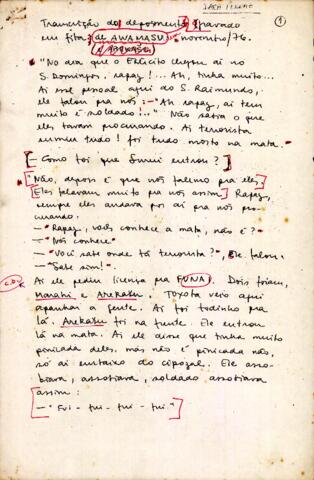 ①
Transcrição do depoimento gravado
em fita, de AWAMASU, novembro/76.
e AREKASU
— "No dia que o Exército chegou aí no
S. Domingos, rapaz!... Ah, tinha muito...
Aí esse pessoal aqui do S. Raimundo,
ele falou pra nós: — "Ah rapaz, aí tem
muito é soldado!.." Não sabia o que
eles tavam procurando. Aí terrorista
sumiu tudo! foi tudo morto na mata.
— Como foi que Surui entrou?
"Não, depois é que nós falemo pra eles
Eles falavam muito pra nós assim. Rapaz,
sempre eles andava por aí pra nós pro-
curando.
— "Rapaz, você conhece a mata, não é?"
— "Nós conhece"
— "Você sabe onde tá terrorista?", Ele falou.
— "Sabe sim!.
Aí ele pediu licença pra FUNAI. Dois foram,
Marahi e Arekasu. Toyota veio aqui
apanhar a gente. Aí foi todinho pra
lá. Arekasu foi na frente. Ele entrou
lá na mata. Aí ele disse que tinha muito
pinicada deles, mas não é pinicada não,
só aí embaixo do cipozal. Ele asso-
biava, assobiava, soldado assobiava
assim:
— "Fui - fui - fui - fui."